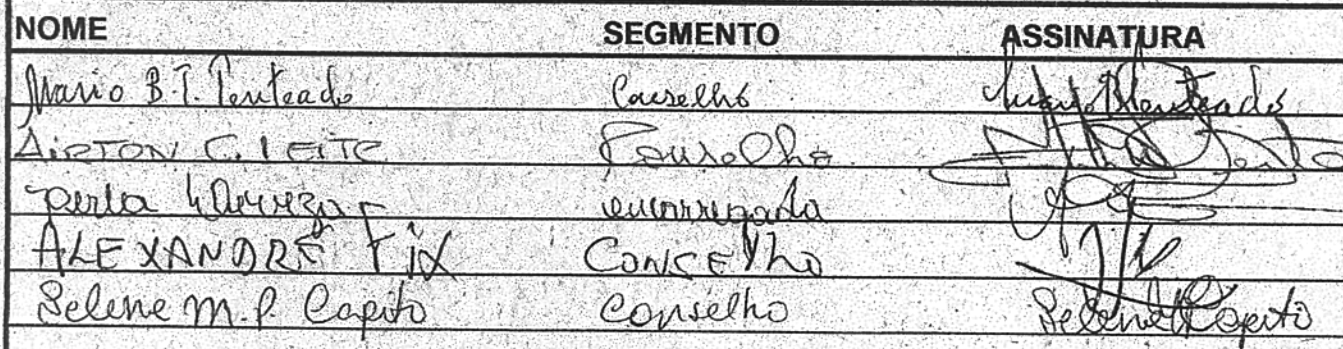 NOME SEGMENTO ASSINATURA
Mario B.T. Penteado Conselho Penteado
AIRTON C. LEITE Conselho
Perla encarregada
ALEXANDRE FIX CONSELho
Selene M.P. Capito Conselho Selene Capito